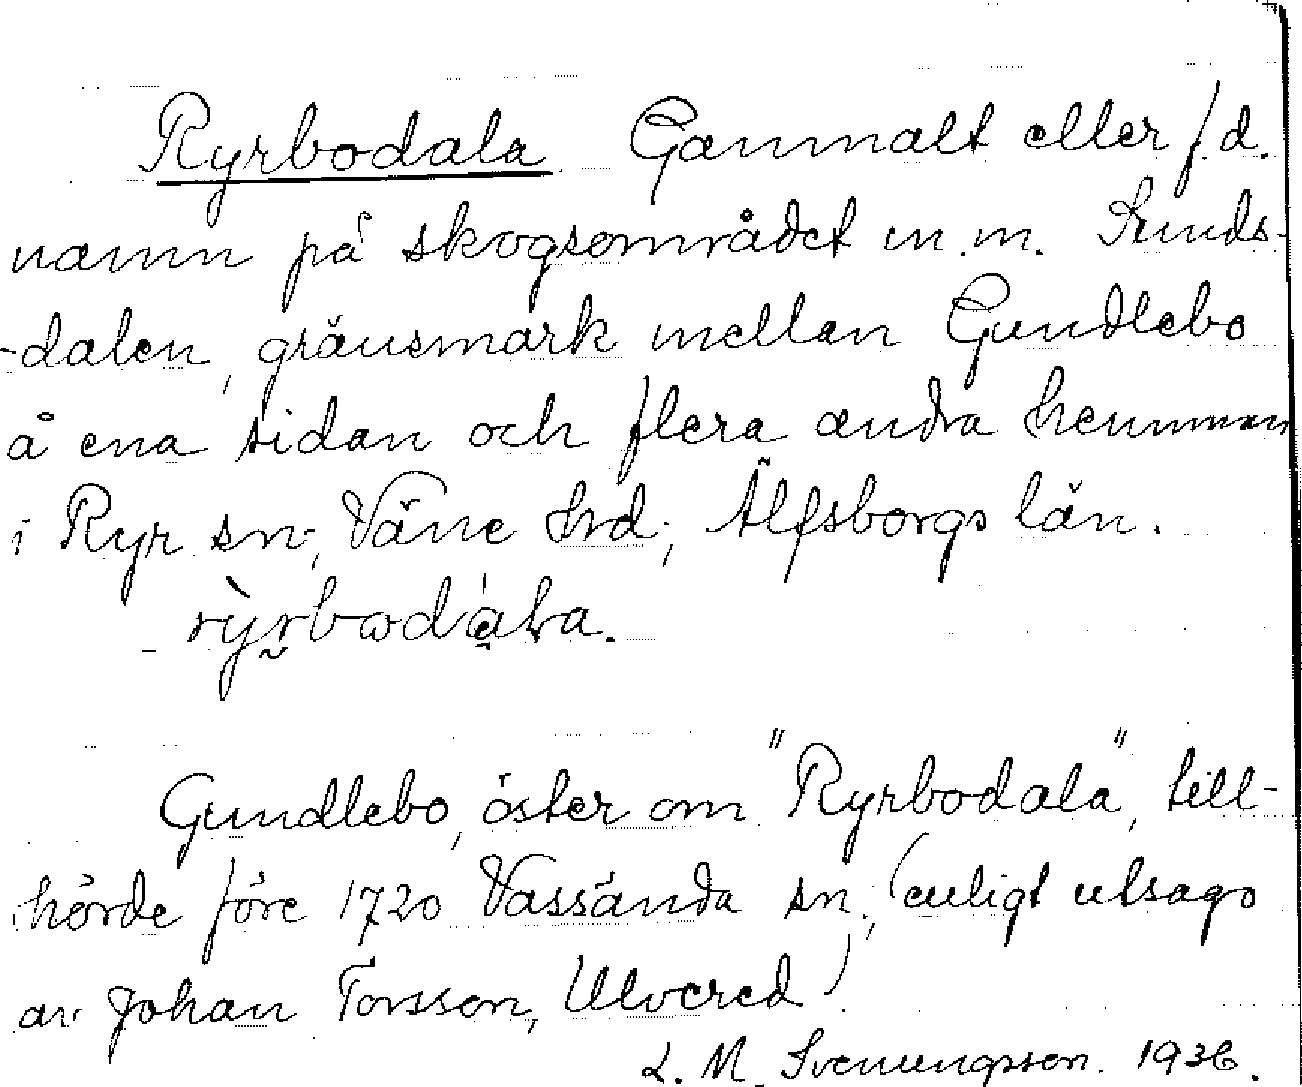 Ryrbodala Gammalt eller f.d.
namn på skogsområdet m.m. Sunds-
-dalen, gränsmark mellan Gundlebo
å ena sidan och flera andra hemman
i Ryr sn; Väne hrd; Älfsborgs län.
Gundlebo, öster om "Ryrbodala", till-
hörde före 1720 Vassända sn; (enligt utsago
av Johan Torsson, Ulvered)
L. M. Svenungsson. 1936.